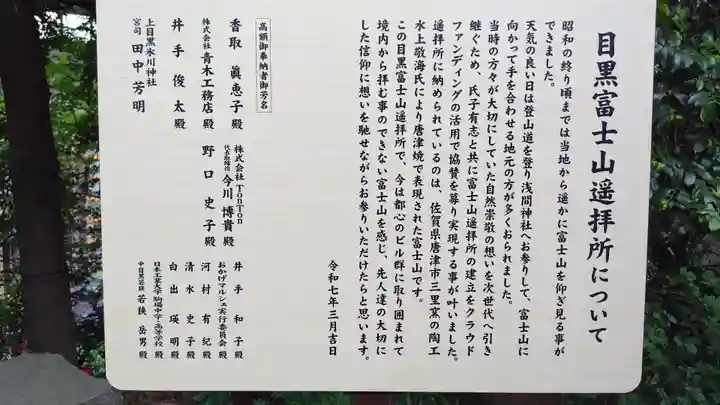 目黒富士山遥拝所について
昭和の終り頃までは当地から遥かに富士山を仰ぎ見る事が
できました。
天気の良い日は登山道を登り浅間神社へお参りして、富士山に
向かって手を合わせる地元の方が多くおられました。
当時の方々が大切にしていた自然崇敬の想いを次世代へ引き
継ぐため、氏子有志と共に富士山遥拝所の建立をクラウド
ファンディングの活用で協賛を募り実現する事が叶いました。
遥拝所に納められているのは、佐賀県唐津市三里窯の陶工
水上敬海氏により唐津焼で表現された富士山です。
この目黒富士山遥拝所で、今は都心のビル群に取り囲まれて
境内から拝む事のできない富士山を感じ、先人達の大切に
した信仰に想いを馳せながらお参りいただけたらと思います。
令和七年三月吉日
高額御奉納者御芳名
香取 眞恵子殿
株式会社 青木工務店殿
井手 俊太殿
上目黒氷川神社
宮司 田中芳明
株式会社 TonTon
代表取締役 今川 博貴殿
野口 史子殿
井手 和子殿
おかげマルシェ実行委員会殿
河村 有紀殿
清水 史子殿
白出 瑛明殿
日本工業大学 駒場中学・高等学校殿
中目黒若狭 若狭 岳男殿